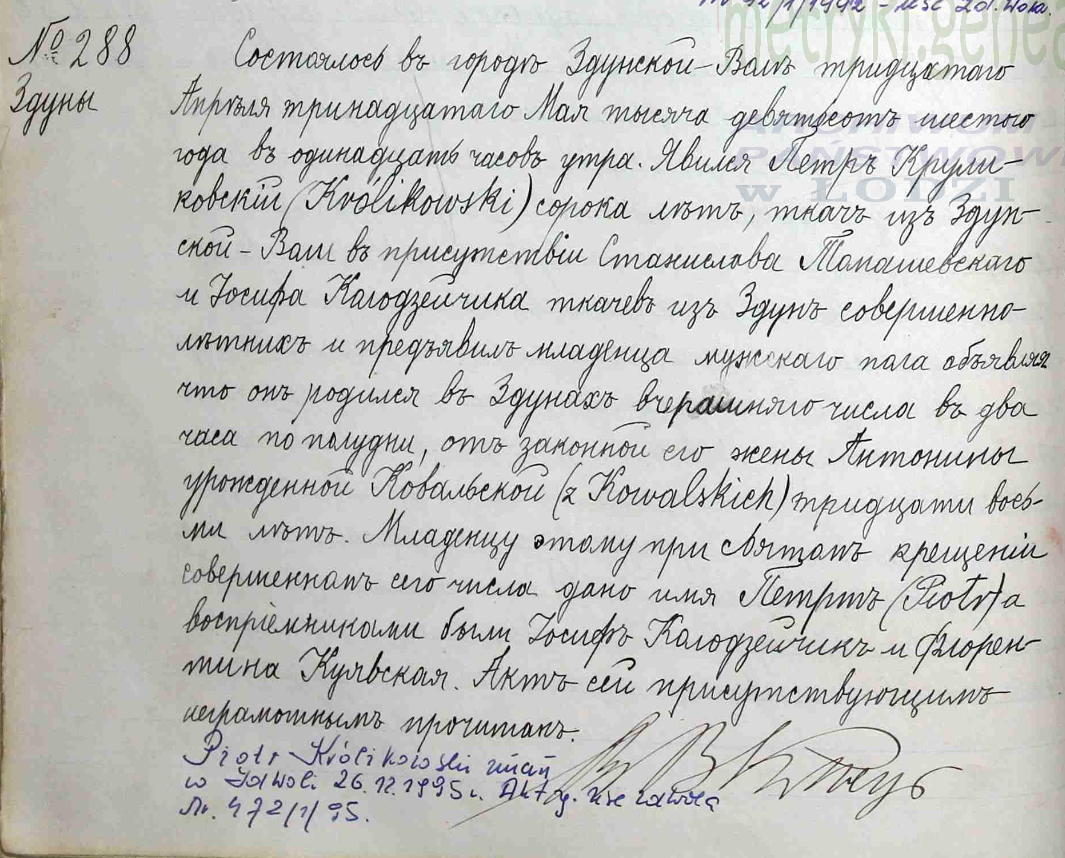 № 288
Здуны
Состоялось въ городѣ Здунской-Волѣ тридцатаго
Апрѣля тринадцатаго Мая тысяча девятьсотъ шестого
года въ одинадцать часовъ утра. Явился Петръ Крули-
ковскій (Królikowski) сорока лѣтъ, ткачъ изъ Здун-
ской-Воли въ присутствіи Станислава Топашевскаго
и Іосифа Колодзейчика ткачевъ изъ Здунъ совершенно-
лѣтнихъ и предъявилъ младенца мужскаго пола объявляя
что онъ родился въ Здунахъ вчерашняго числа въ два
часа по полудни, отъ законной его жены Антонины
урожденной Ковальской (z Kowalskich) тридцати вось-
ми лѣтъ. Младенцу этому при Святомъ крещеніи
совершенномъ сего числа дано имя Петръ (Piotr) а
воспріемниками были Іосифъ Колодзейчикъ и Флорен-
тина Куявская. Актъ сей присутствующимъ
неграмотнымъ прочитанъ.
Piotr Królikowski
w Zd Woli 26.12.1995 r. Akt zg.
Nr. 472/1/95.
metryki.genea
ARCHIWUM
PAŃSTWOW
W ŁODZI